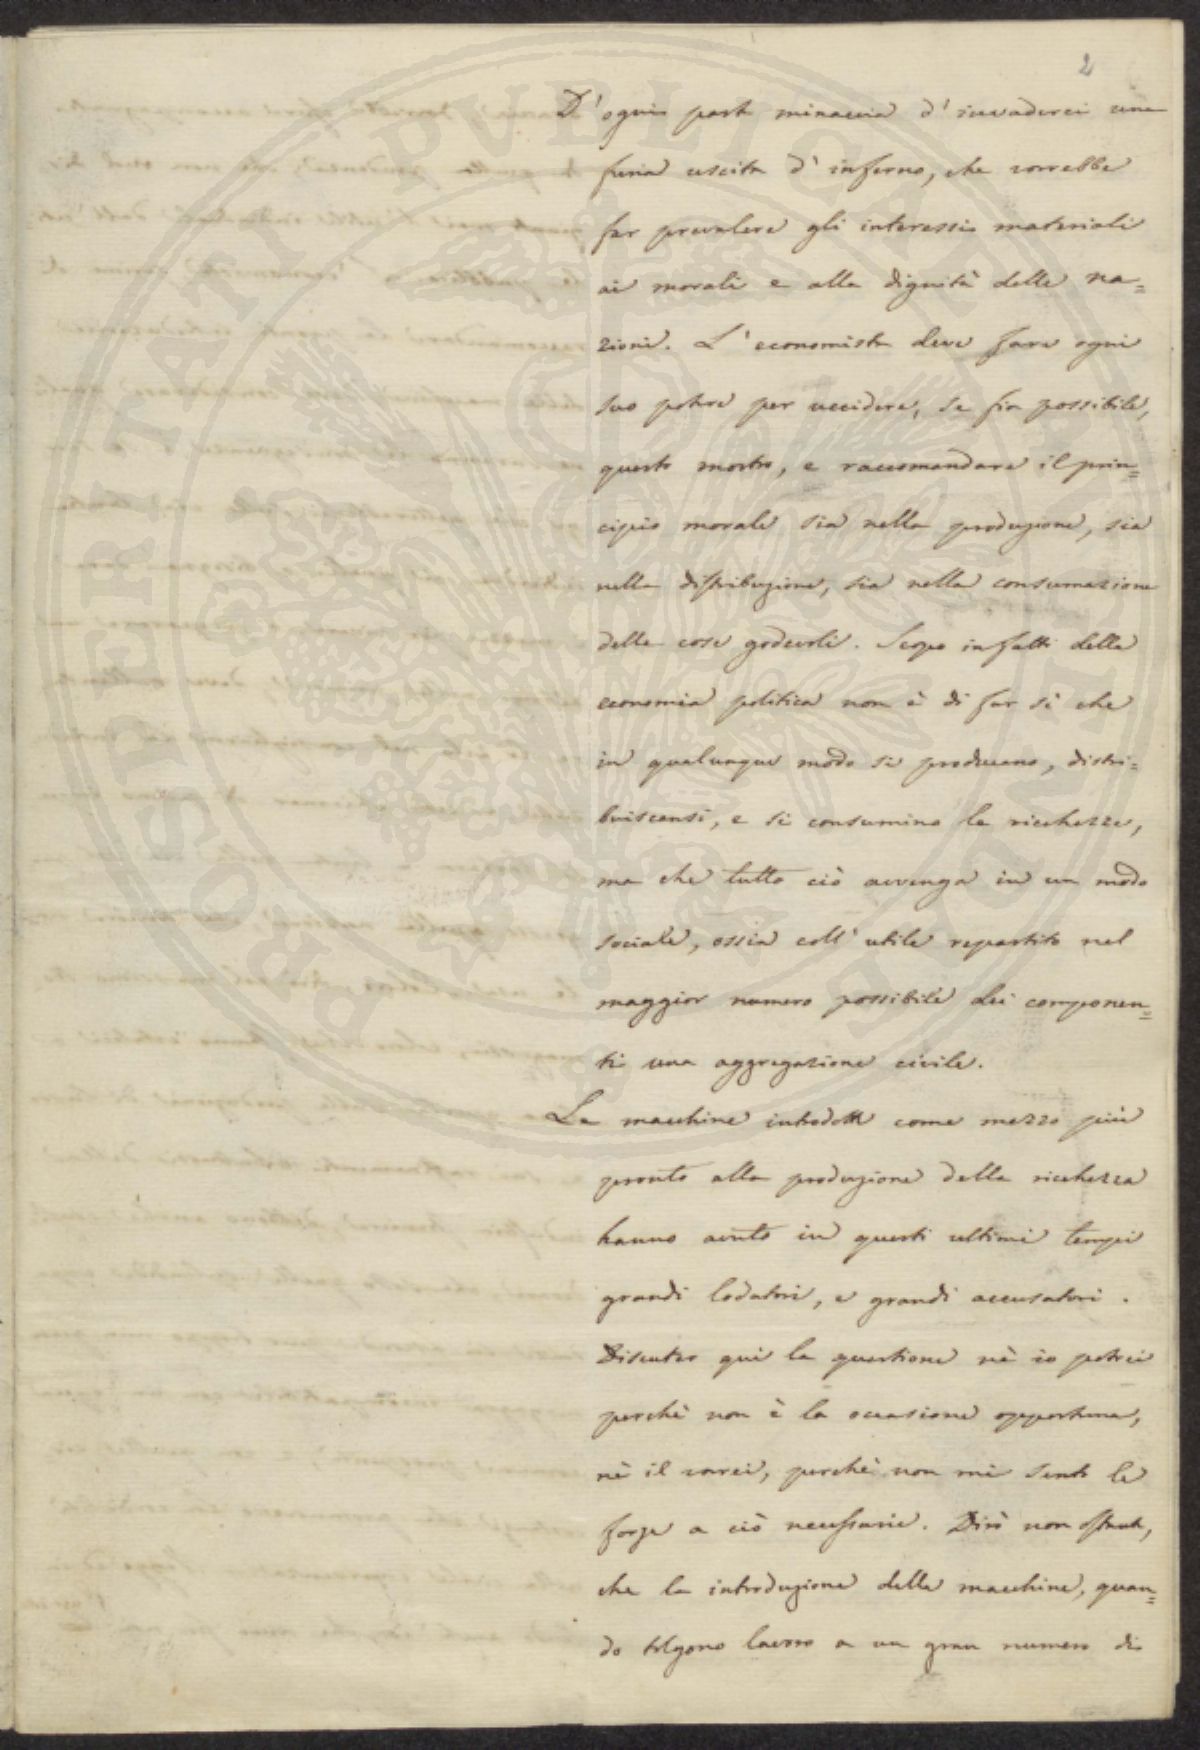 2
D'ogni parte minaccia d'invaderci una
furia uscita d'inferno, che vorrebbe
far prevalere gli interessi materiali
ai morali e alla dignità delle na=
zioni. L'economista deve fare ogni
suo potere per uccidere, se fia possibile,
questo mostro, e raccomandare il prin=
cipio morale sia nella produzione, sia
nella distribuzione, sia nella consumazione
delle cose godevoli. Scopo infatti della
economia politica non è di far sì che
in qualunque modo si producano, distri=
buiscansi, e si consumino le ricchezze,
ma che tutto ciò avvenga in un modo
sociale, ossia coll'utile repartito nel
maggior numero possibile dei componen=
ti una aggregazione civile.
Le macchine introdotte come mezzo più
pronto alla produzione della ricchezza
hanno avuto in questi ultimi tempi
grandi lodatori, e grandi accusatori.
Discuter qui la questione nè io potrei
perchè non è la occasione opportuna,
nè il vorrei, perchè non mi sento le
forze a ciò necessarie. Dirò non ostante,
che la introduzione delle macchine, quan=
do tolgono lavoro a un gran numero di
PROSPERITATI PVBLICAE